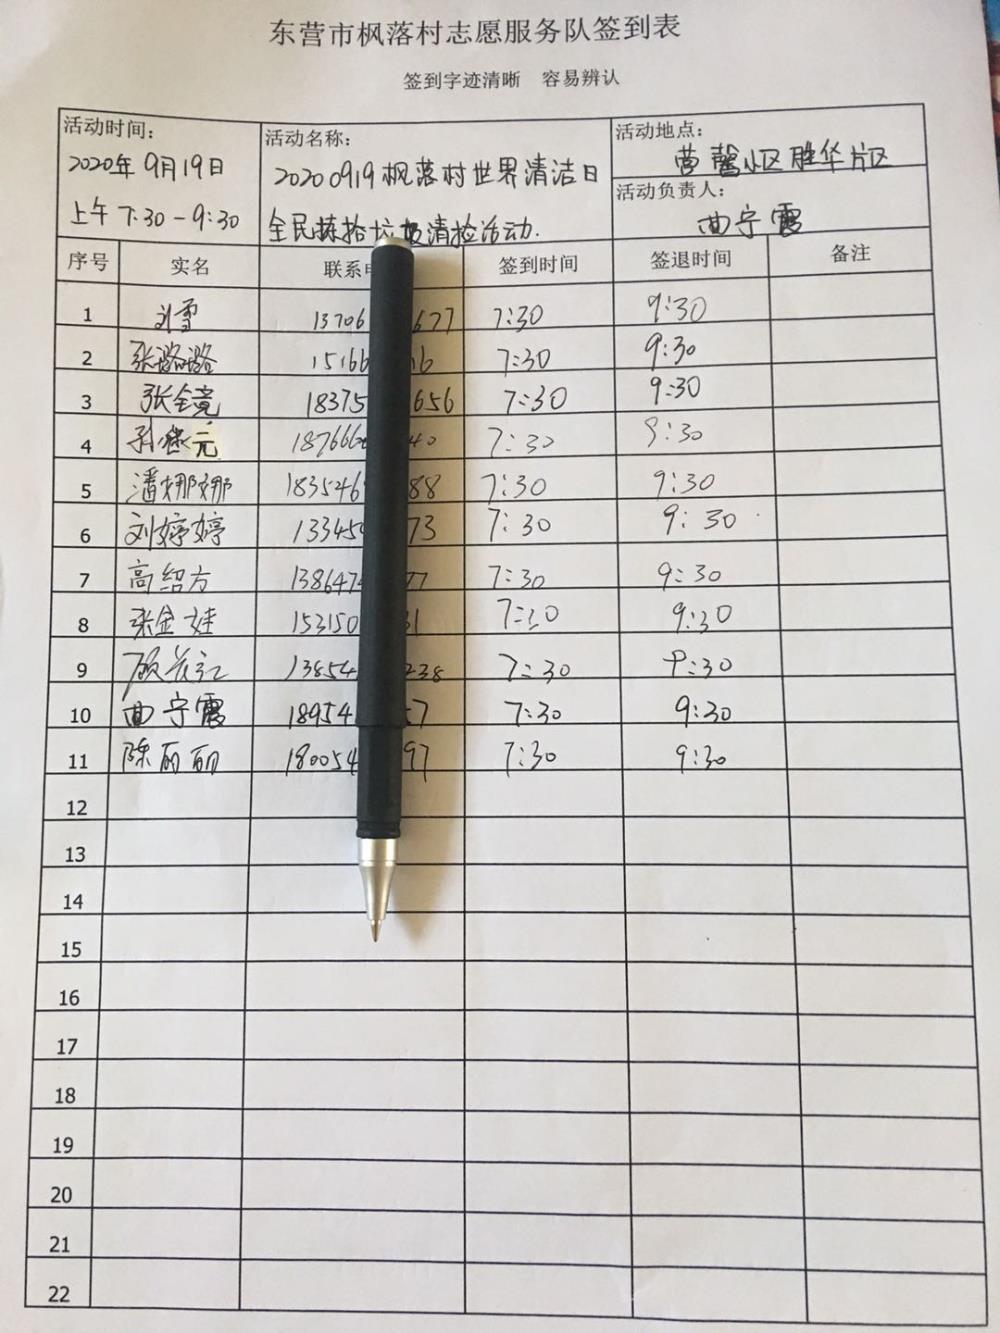 东营市枫落村志愿服务队签到表
签到字迹清晰 容易辨认
活动时间：
2020年9月19日
上午 7:30-9:30
活动名称：
20200919枫落村世界清洁日
全民捡拾垃圾清捡活动.
活动地点：
营馨小区胜华片区
活动负责人：
曲宁霞
序号 实名 联系 签到时间 签退时间 备注
1 刘雪 13706 677 7:30 9:30
2 张潞潞 15166 16 7:30 9:30
3 张全竟 18375 656 7:30 9:30
4 元 187666 40 7:30 9:30
5 潘娜娜 183546 88 7:30 9:30
6 刘婷婷 13345 73 7:30 9:30
7 高绍方 138647 77 7:30 9:30
8 张金娃 153150 31 7:30 9:30
9 13854 238 7:30 9:30
10 曲宁霞 18954 57 7:30 9:30
11 陈丽丽 180054 97 7:30 9:30
12
13
14
15
16
17
18
19
20
21
22